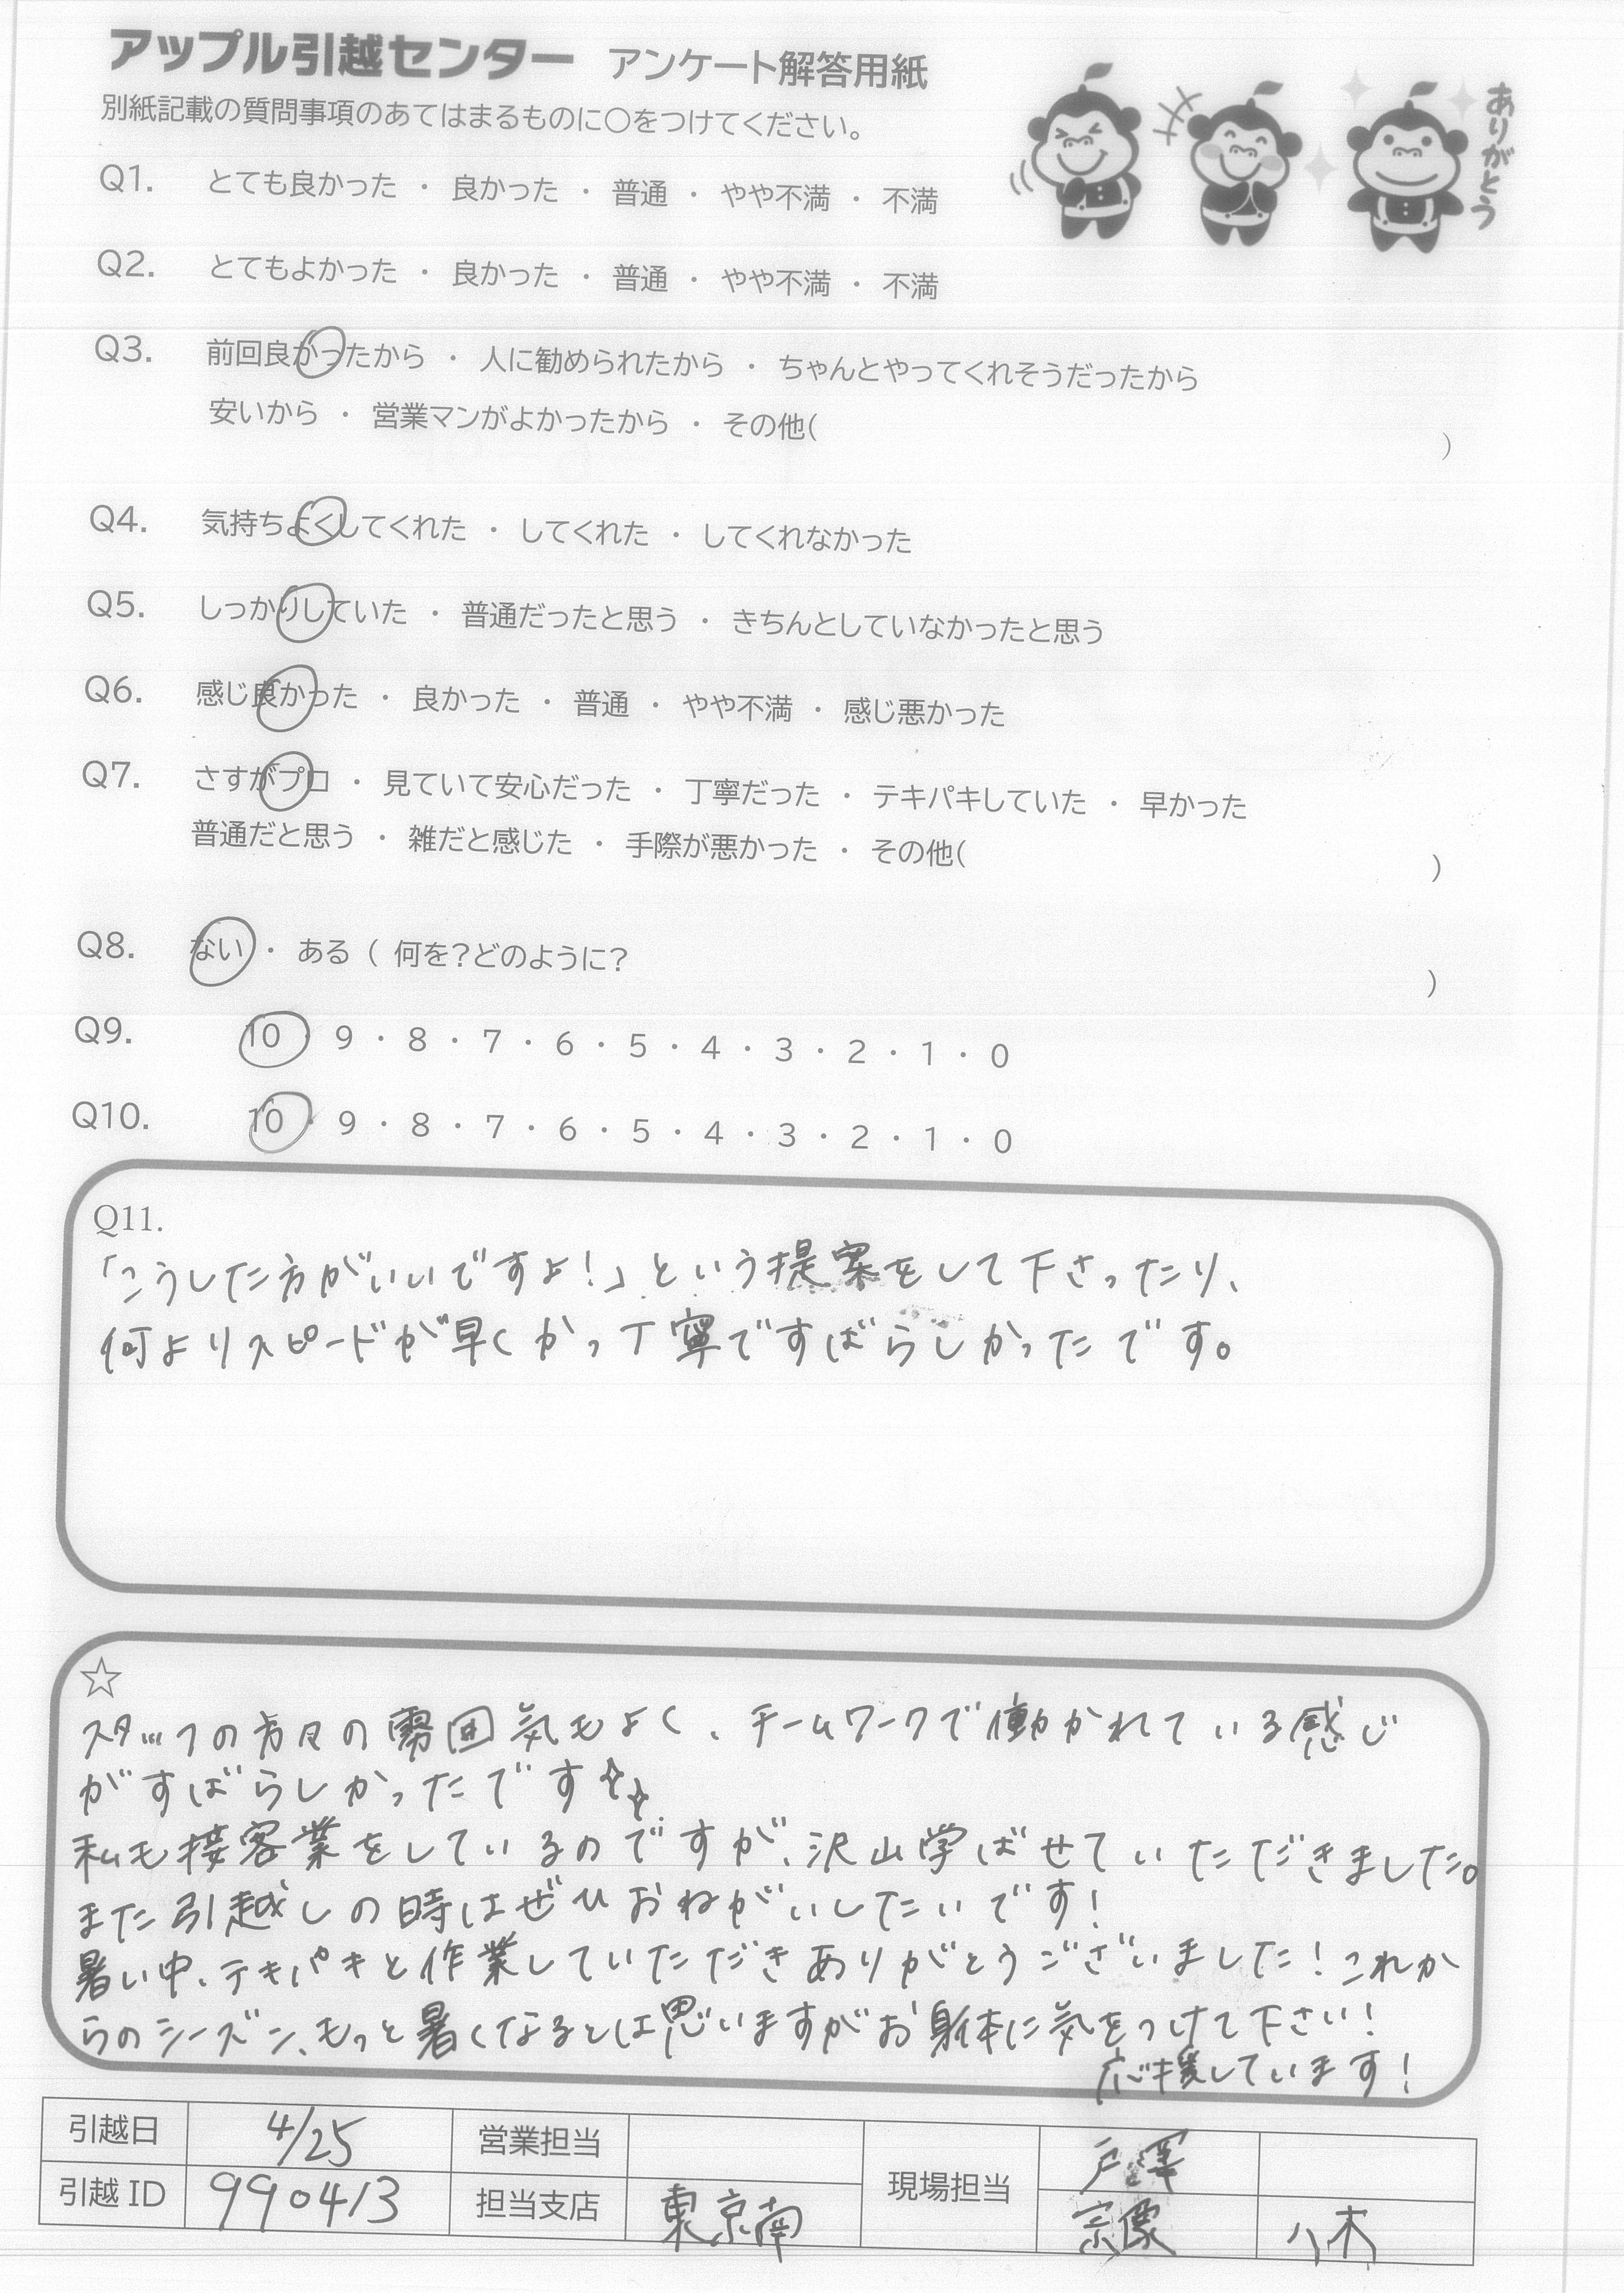 アップル引越センター アンケート解答用紙
別紙記載の質問事項のあてはまるものに〇をつけてください。
ありがとう
Q1. とても良かった ・ 良かった ・ 普通 ・ やや不満 ・ 不満
Q2. とてもよかった ・ 良かった ・ 普通 ・ やや不満 ・ 不満
Q3. 前回良かったから ・ 人に勧められたから ・ ちゃんとやってくれそうだったから
安いから ・ 営業マンがよかったから ・ その他( )
Q4. 気持ちよくしてくれた ・ してくれた ・ してくれなかった
Q5. しっかりしていた ・ 普通だったと思う ・ きちんとしていなかったと思う
Q6. 感じ良かった ・ 良かった ・ 普通 ・ やや不満 ・ 感じ悪かった
Q7. さすがプロ ・ 見ていて安心だった ・ 丁寧だった ・ テキパキしていた ・ 早かった
普通だと思う ・ 雑だと感じた ・ 手際が悪かった ・ その他( )
Q8. ない ・ ある ( 何を?どのように? )
Q9. 10 ・ 9 ・ 8 ・ 7 ・ 6 ・ 5 ・ 4 ・ 3 ・ 2 ・ 1 ・ 0
Q10. 10 ・ 9 ・ 8 ・ 7 ・ 6 ・ 5 ・ 4 ・ 3 ・ 2 ・ 1 ・ 0
Q11.
「こうした方がいいですよ!」という提案をして下さったり、
何よりスピードが早くかつ丁寧ですばらしかったです。
☆
スタッフの方々の雰囲気もよく、チームワークで働かれている感じ
がすばらしかったです
私も接客業をしているのですが、沢山学ばせていただきました。
また引越しの時はぜひおねがいしたいです!
暑い中、テキパキと作業していただきありがとうございました!これか
らのシーズン、もっと暑くなるとは思いますがお身体に気をつけて下さい!
応援しています!
引越日 4/25 営業担当 現場担当 戸澤
引越 ID 990413 担当支店 東京南 宗像 八木